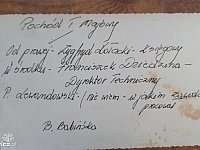 Pochód 1 Majowy
Od prawej - Zygmunt - księgowy
W środku - Franciszek
Dyrektor Techniczny
P. Lewandowski - / nie wiem - w jakim zawodzie
pracował
B. Babińska